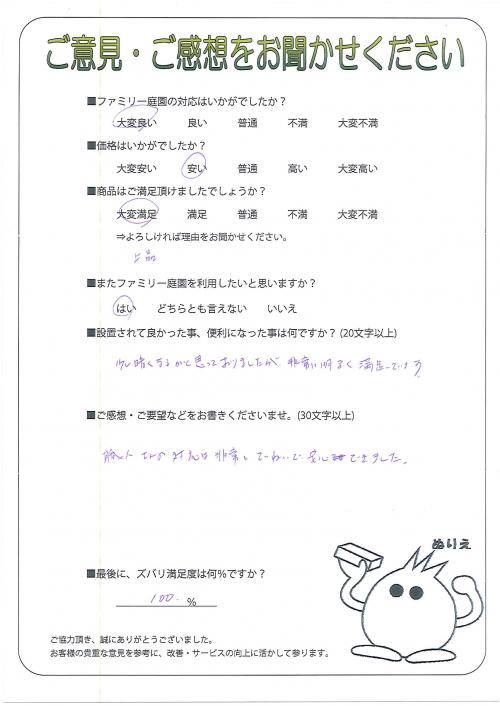 ご意見・ご感想をお聞かせください
■ファミリー庭園の対応はいかがでしたか？
大変良い 良い 普通 不満 大変不満
■価格はいかがでしたか？
大変安い 安い 普通 高い 大変高い
■商品はご満足頂けましたでしょうか？
大変満足 満足 普通 不満 大変不満
⇒よろしければ理由をお聞かせください。
上品
■またファミリー庭園を利用したいと思いますか？
はい どちらとも言えない いいえ
■設置されて良かった事、便利になった事は何ですか？(20文字以上)
少し暗くなるかと思っておりましたが 非常に明るく 満足しています
■ご感想・ご要望などをお書きくださいませ。(30文字以上)
さんの 対応は 非常に ていねいで 安心 できました。
■最後に、ズバリ満足度は何％ですか？
100 ％
ぬりえ
ご協力頂き、誠にありがとうございました。
お客様の貴重な意見を参考に、改善・サービスの向上に活かして参ります。